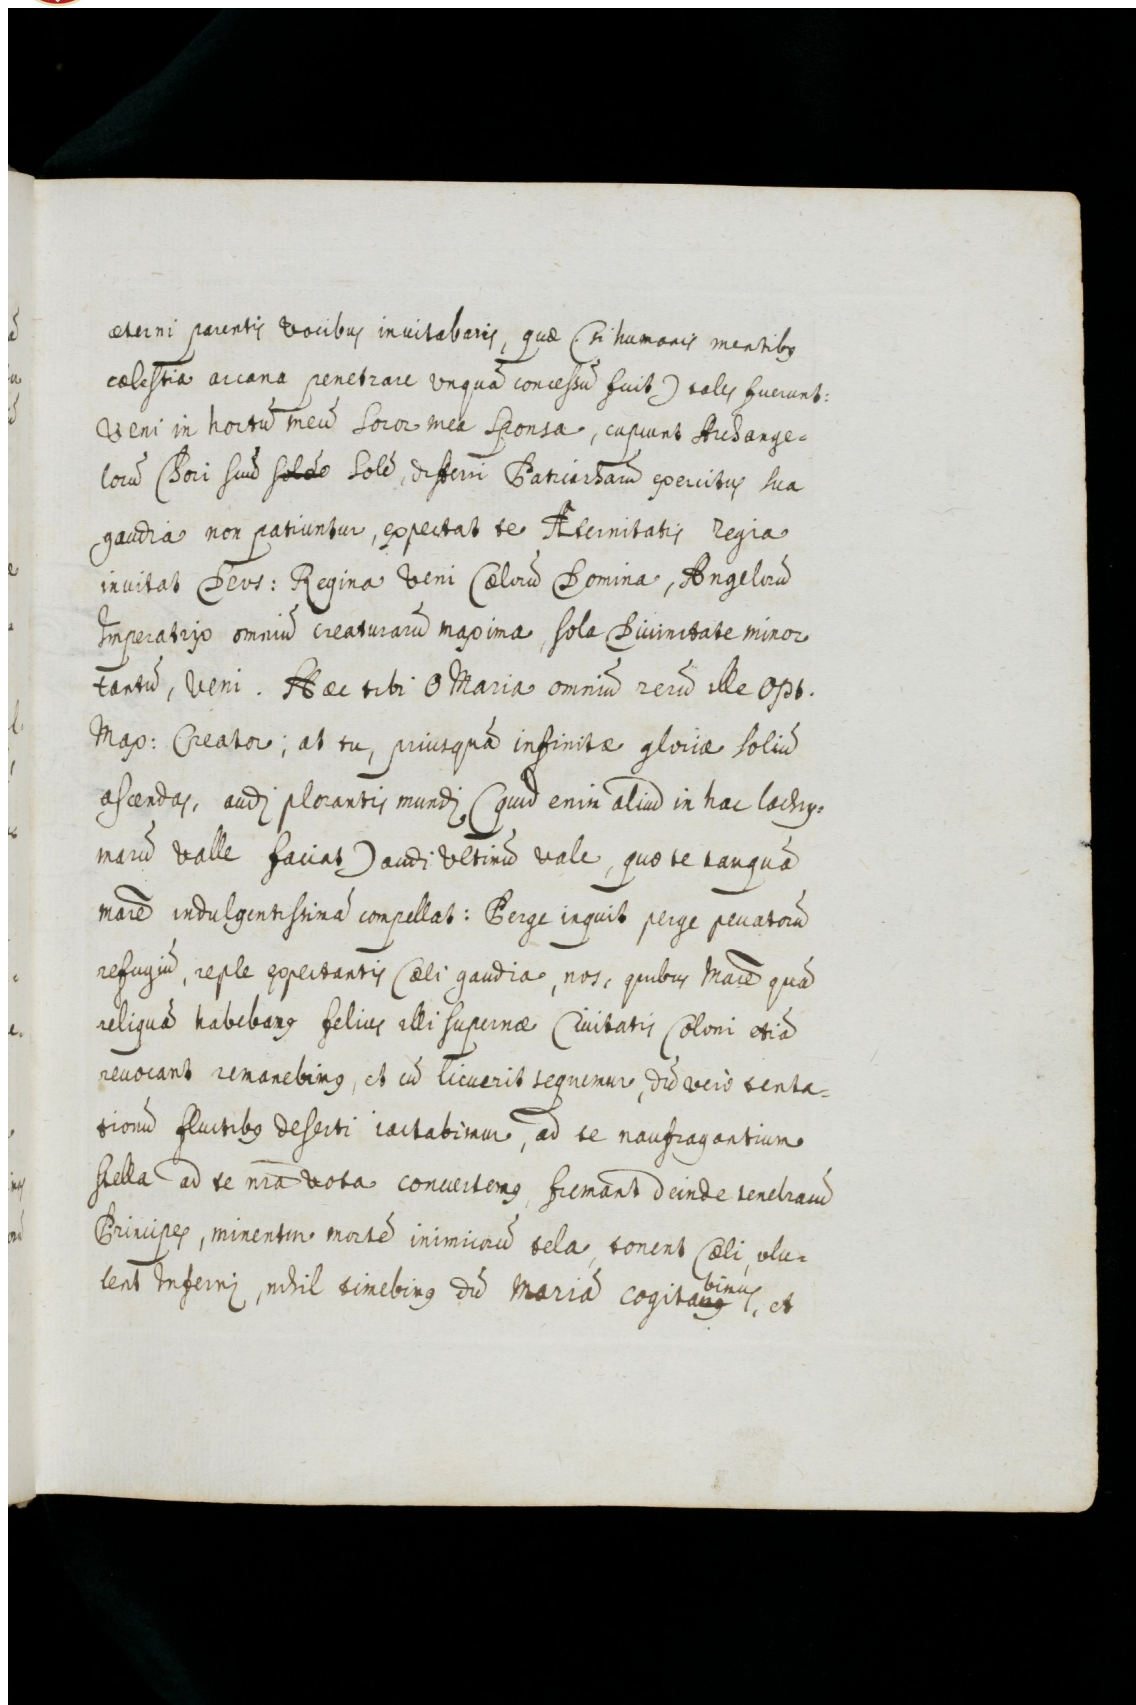 æterni parentis vocibus invitabaris, quæ (si humanis mentibꝰ
cælestia arcana penetrare vnquā concessū fuit) tales fuerunt:
Veni in hortū meū soror mea sponsa, cupiunt Archange=
lorū Chori suū solē, differri Patriarcharū exercitus sua
gaudia non patiuntur, expectat te Æternitatis regia
invitat Deus: Regina veni Cælorū Domina, Angelorū
Imperatrix omniū creaturarū maxima, sola Divinitate minor
tantū, veni. Hæc tibi O Maria omniū rerū ille Opt.
Max: Creator; at tu, priusquā infinitæ gloriæ soliū
ascendas, audi plorantis mundi (quid enim aliud in hac lachry=
marū valle faciat) audi vltimū vale, quo te tanquā
mārē indulgentissimā compellat: Perge inquit perge peccatorū
refugiū, reple expectantis Cæli gaudia, nos, quibus Mārē quā
reliquā habebamꝰ felius illi supernæ Civitatis Coloni etiā
revocant remanebimꝰ, et cū licuerit sequemur, dū verò tenta=
tionū fluctibꝰ deserti iactabimur, ad te naufragantium
stella ad te nr̄a vota convertemꝰ, fremant deinde tenebrarū
Principes, minentur mortē inimicorū tela, tonent Cæli, vlu=
lent Inferni, nihil timebimꝰ dū Mariā cogitabimus, et